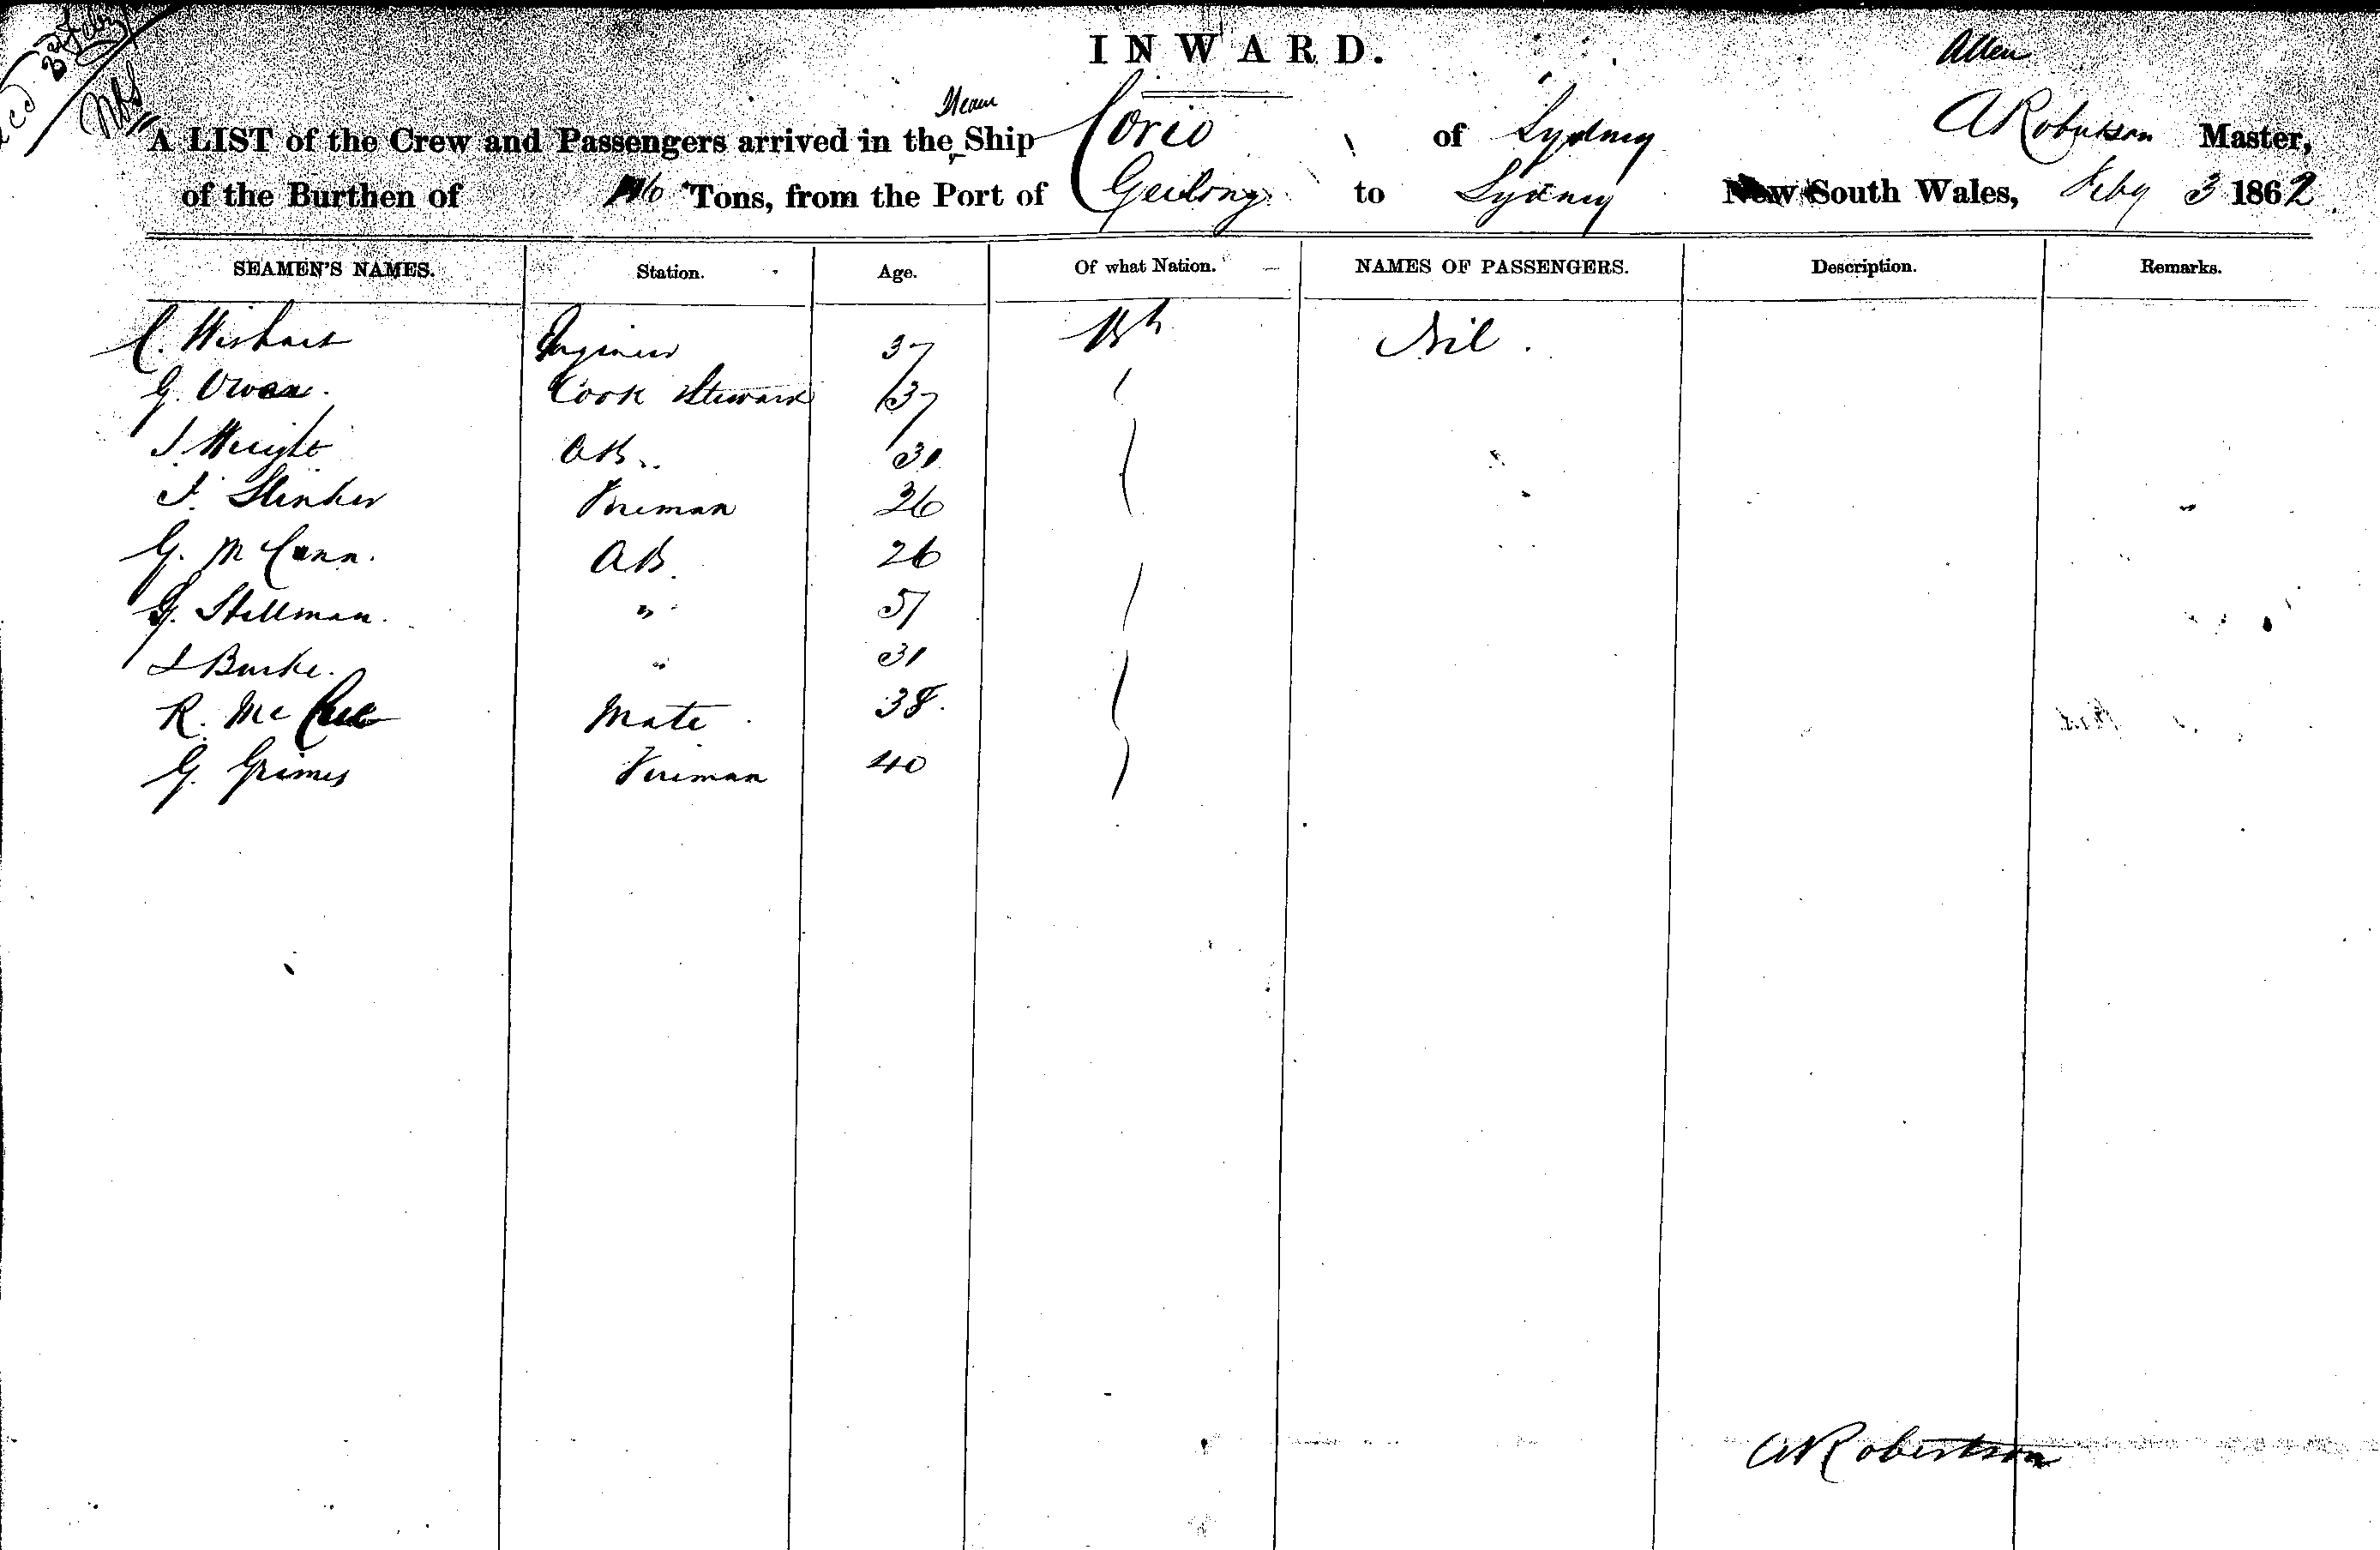 INWARD.
Allen
Steam
A LIST of the Crew and Passengers arrived in the Ship Corio of Sydney A Robertson Master,
of the Burthen of Tons, from the Port of Geelong to Sydney New South Wales, Feby 3 1862
SEAMEN'S NAMES. Station. Age. Of what Nation. NAMES OF PASSENGERS. Description. Remarks.
C. Wishart Engineer 37 Bh Nil.
G. Owen. Cook Steward 37
J. Wright AB.. 31
J. Slinker Fireman 26
G. McCann. AB. 26
G. Stellman. " 51
J Burke. " 31
R. Mate. 38.
G. Grimes Fireman 40
A Robertson